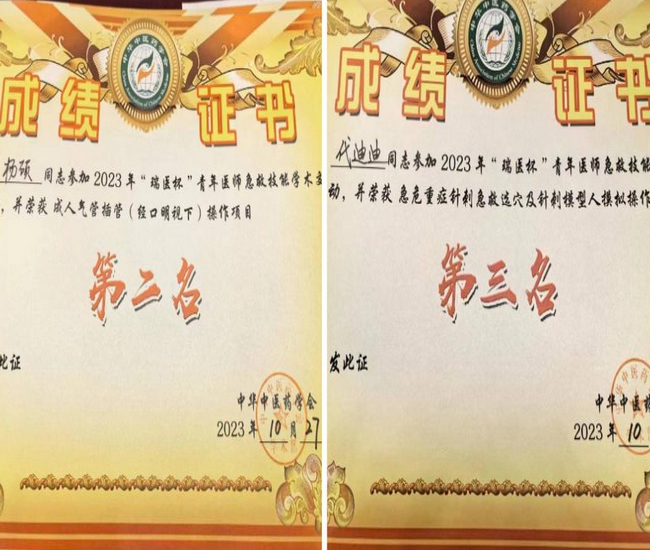 成绩证书
杨硕 同志参加 2023 年“瑞医杯”青年医师急救技能学术
，并荣获 成人气管插管（经口明视下）操作项目
第二名
此证
中华中医药学会
2023 年 10 月 27
成绩证书
代迪迪 同志参加 2023 年“瑞医杯”青年医师急救技能
动，并荣获 急危重症针刺急救选穴及针刺模型人模拟操作
第三名
发此证
中华中医药
2023 年 10